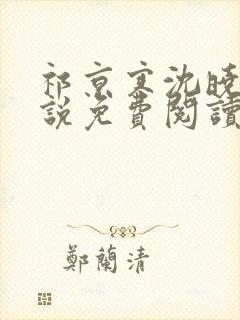 祁京寒沈曉
說免費閱讀
鄭蘭清